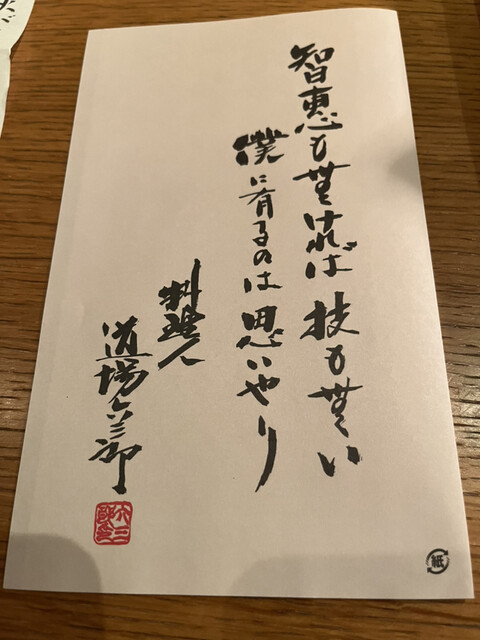 智恵も無ければ技も無い
僕に有るのは思いやり
料理人
道場六三郎
紙